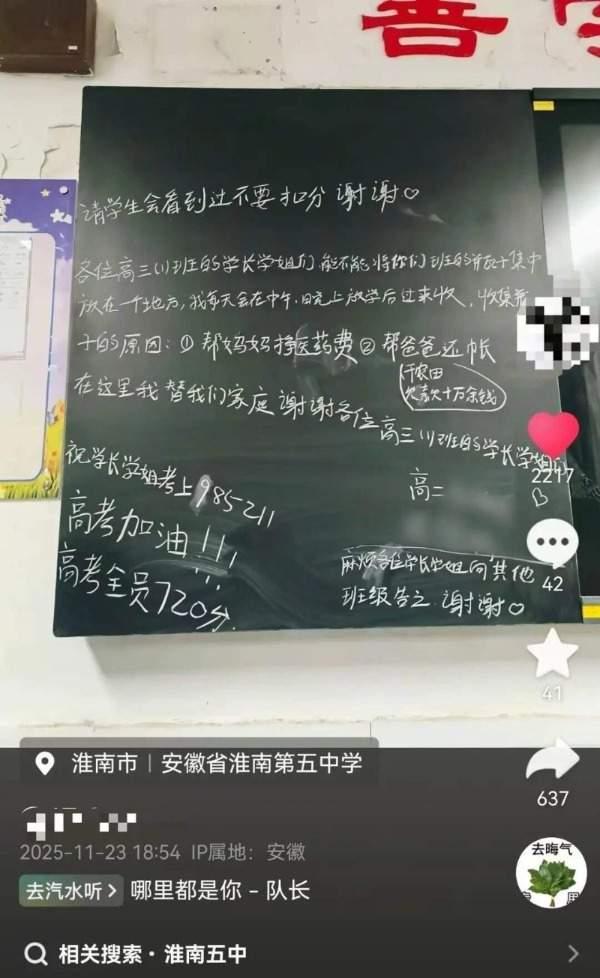 善
请学生会看到过不要扣分 谢谢♡
各位高三(1)班的学长学姐们,能不能将你们班的瓶子集中
放在一个地方,我每天会在中午、晚上放学后过来收,收集瓶
子的原因:①帮妈妈挣医药费②帮爸爸还帐
欠款十万余钱
在这里我替我们家庭谢谢各位高三(1)班的学长学姐
高二
祝学长学姐考上985211
高考加油!!!
高考全员720分.
麻烦各位学长学姐向其他
班级告之.谢谢♡
2217
42
41
637
淮南市|安徽省淮南第五中学
2025-11-23 18:54 IP属地:安徽
去汽水听> 哪里都是你 - 队长
去晦气
相关搜索·淮南五中